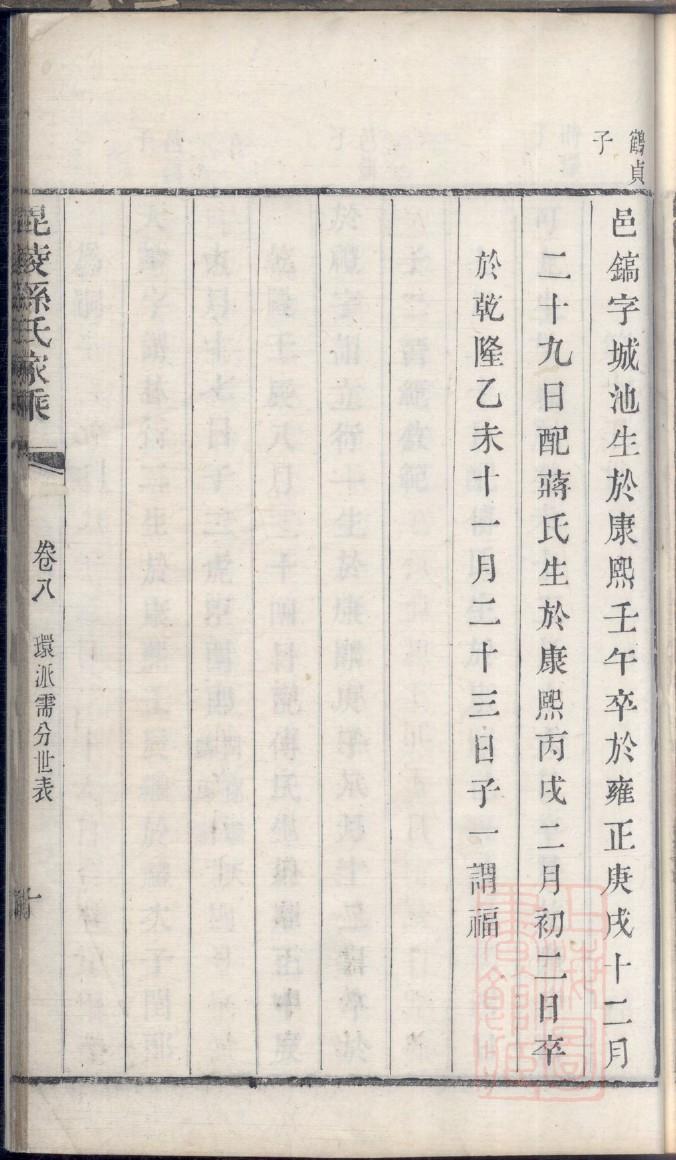 鶴貞
子
邑鎬字城池生於康熙壬午卒於雍正庚戌十二月
二十九日配蔣氏生於康熙丙戌二月初二日卒
於乾隆乙未十一月二十三日子一謂福
毘陵孫氏家乘
卷八
環派需分世表